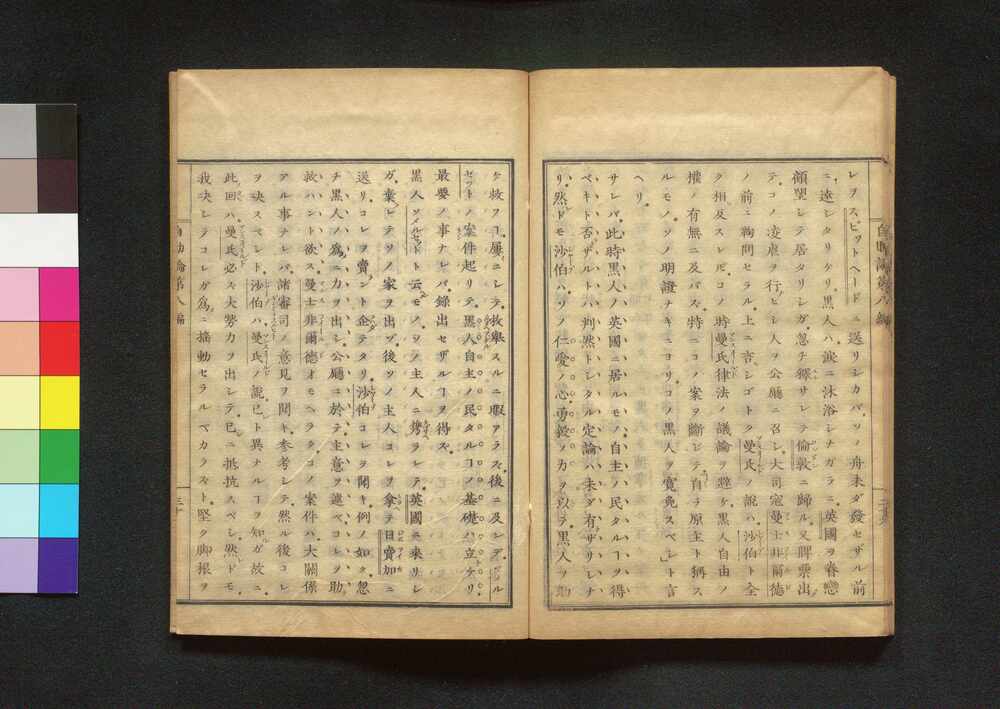 レヲスピットヘードニ送リシカバ。ソノ舟未ダ發セザル前
ニ達シタリケリ。黒人ハ涙ニ沐浴シナガラニ英國ヲ眷戀
顧望シテ居タリシガ。忽チ釋サレテ倫敦ニ歸ル。又牌票出
テコノ凌虐ヲ行ヒシ人ヲ公廳ニ召シ。大司寇曼士非爾德
ノ前ニ鞠問セラル。上ニ言シゴトク曼氏ノ說ハ。沙伯ト全
ク相反スレドモ。コノ時曼氏律法ノ議論ヲ避ケ。黒人自由ノ
權ノ有無ニ及バズ。特ニコノ案ヲ斷ジテ。自ラ原主ト稱ス
ルモノ。ソノ明證ナキニヨリ。コノ黒人ヲ寛免スベシト言
ヘリ。
サレバ。此時黒人ノ英國ニ居ルモノ。自主ノ民タルヿヲ得
ベキト否ザルトハ。判然トシタル定論ハ。未ダ有ザリシナ
リ。然ドモ沙伯ハ。ソノ仁愛ノ心。勇毅ノ力ヲ以テ。黒人ヲ助
自助論第八編
ケ救フヿ屢ニシテ。枚擧スルニ暇アラズ。後ニ及ンデ。ソメル
セットノ案件起リテ。黒人自主ノ民タルヿノ基礎ハ立ケリ。
最要ノ事ナレバ。錄出セザルヿヲ得ズ。
黒人ソメルセットト云モノ。ソノ主人ニ携ラレテ。英國ニ來リシ
ガ。棄レテソノ家ヲ出ヅ。後ソノ主人コレヲ拿テ日賣加ニ
送リ。コレヲ賣ント企テタリ。沙伯コレヲ聞キ。例ノ如ク忽
チ黒人ノ爲ニ力ヲ出シ。公廳ニ於テ主意ヲ述ベ。コレヲ助
救ハント欲ス。曼士非爾德オモヘラク。コノ案件ハ大關係
アル事ナレバ。諸審司ノ意見ヲ聞キ。參考シテ然ル後コレ
ヲ决スベシト。沙伯ハ曼氏ノ說。已ト異ナルヿヲ知ガ故ニ。
此回ハ曼氏必ズ大勢力ヲ出シテ。已ニ抵抗スベシ。然ドモ。
我决シテコレガ爲ニ搖動セラルベカラズト。堅ク脚根ヲ
自助論第八編
三十